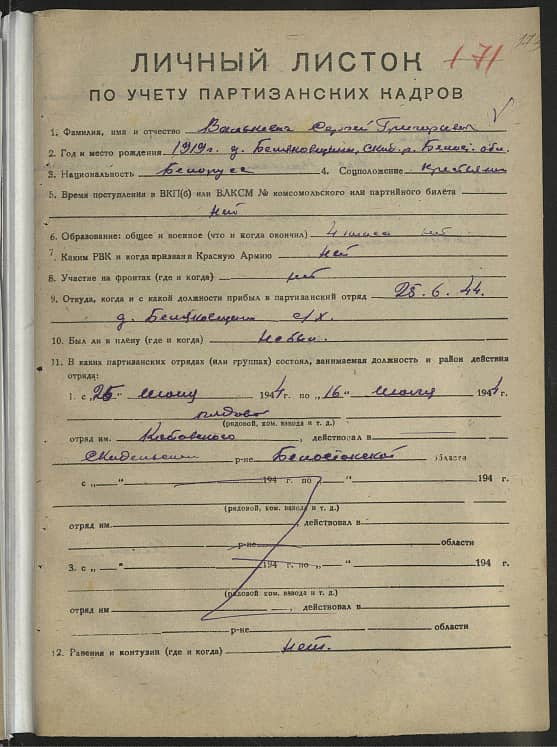 171
ЛИЧНЫЙ ЛИСТОК
ПО УЧЕТУ ПАРТИЗАНСКИХ КАДРОВ
1. Фамилия, имя и отчество Валькевич Сергей Григорьевич
2. Год и место рождения 1919г. д. Беляковщина, Скид. р. Белост. обл.
3. Национальность Белорусс 4. Соцположение Крестьянин
5. Время поступления в ВКП(б) или ВЛКСМ № комсомольского или партийного билета
нет
6. Образование: общее и военное (что и когда окончил) 4 класса нет
7. Каким РВК и когда призван в Красную Армию нет
8. Участие на фронтах (где и когда) нет
9. Откуда, когда и с какой должности прибыл в партизанский отряд 25.6.44.
д. с/х.
10. Был ли в плену (где и когда) не был.
11. В каких партизанских отрядах (или группах) состоял, занимаемая должность и район действия
отряда:
1. с „25" июня 1944 г. по „16" июля 1944 г.
рядовой
(рядовой, ком. взвода и т. д.)
отряд им. , действовал в
Скидельском р-не Белостокской области
с „ " 194 г. по „ " 194 г.
(рядовой, ком. взвода и т. д.)
отряд им. , действовал в
р-не области
3. с „ " 194 г. по „ " 194 г.
(рядовой, ком. взвода и т. д.)
отряд им , действовал в
р-не области
12. Ранения и контузии (где и когда) нет.